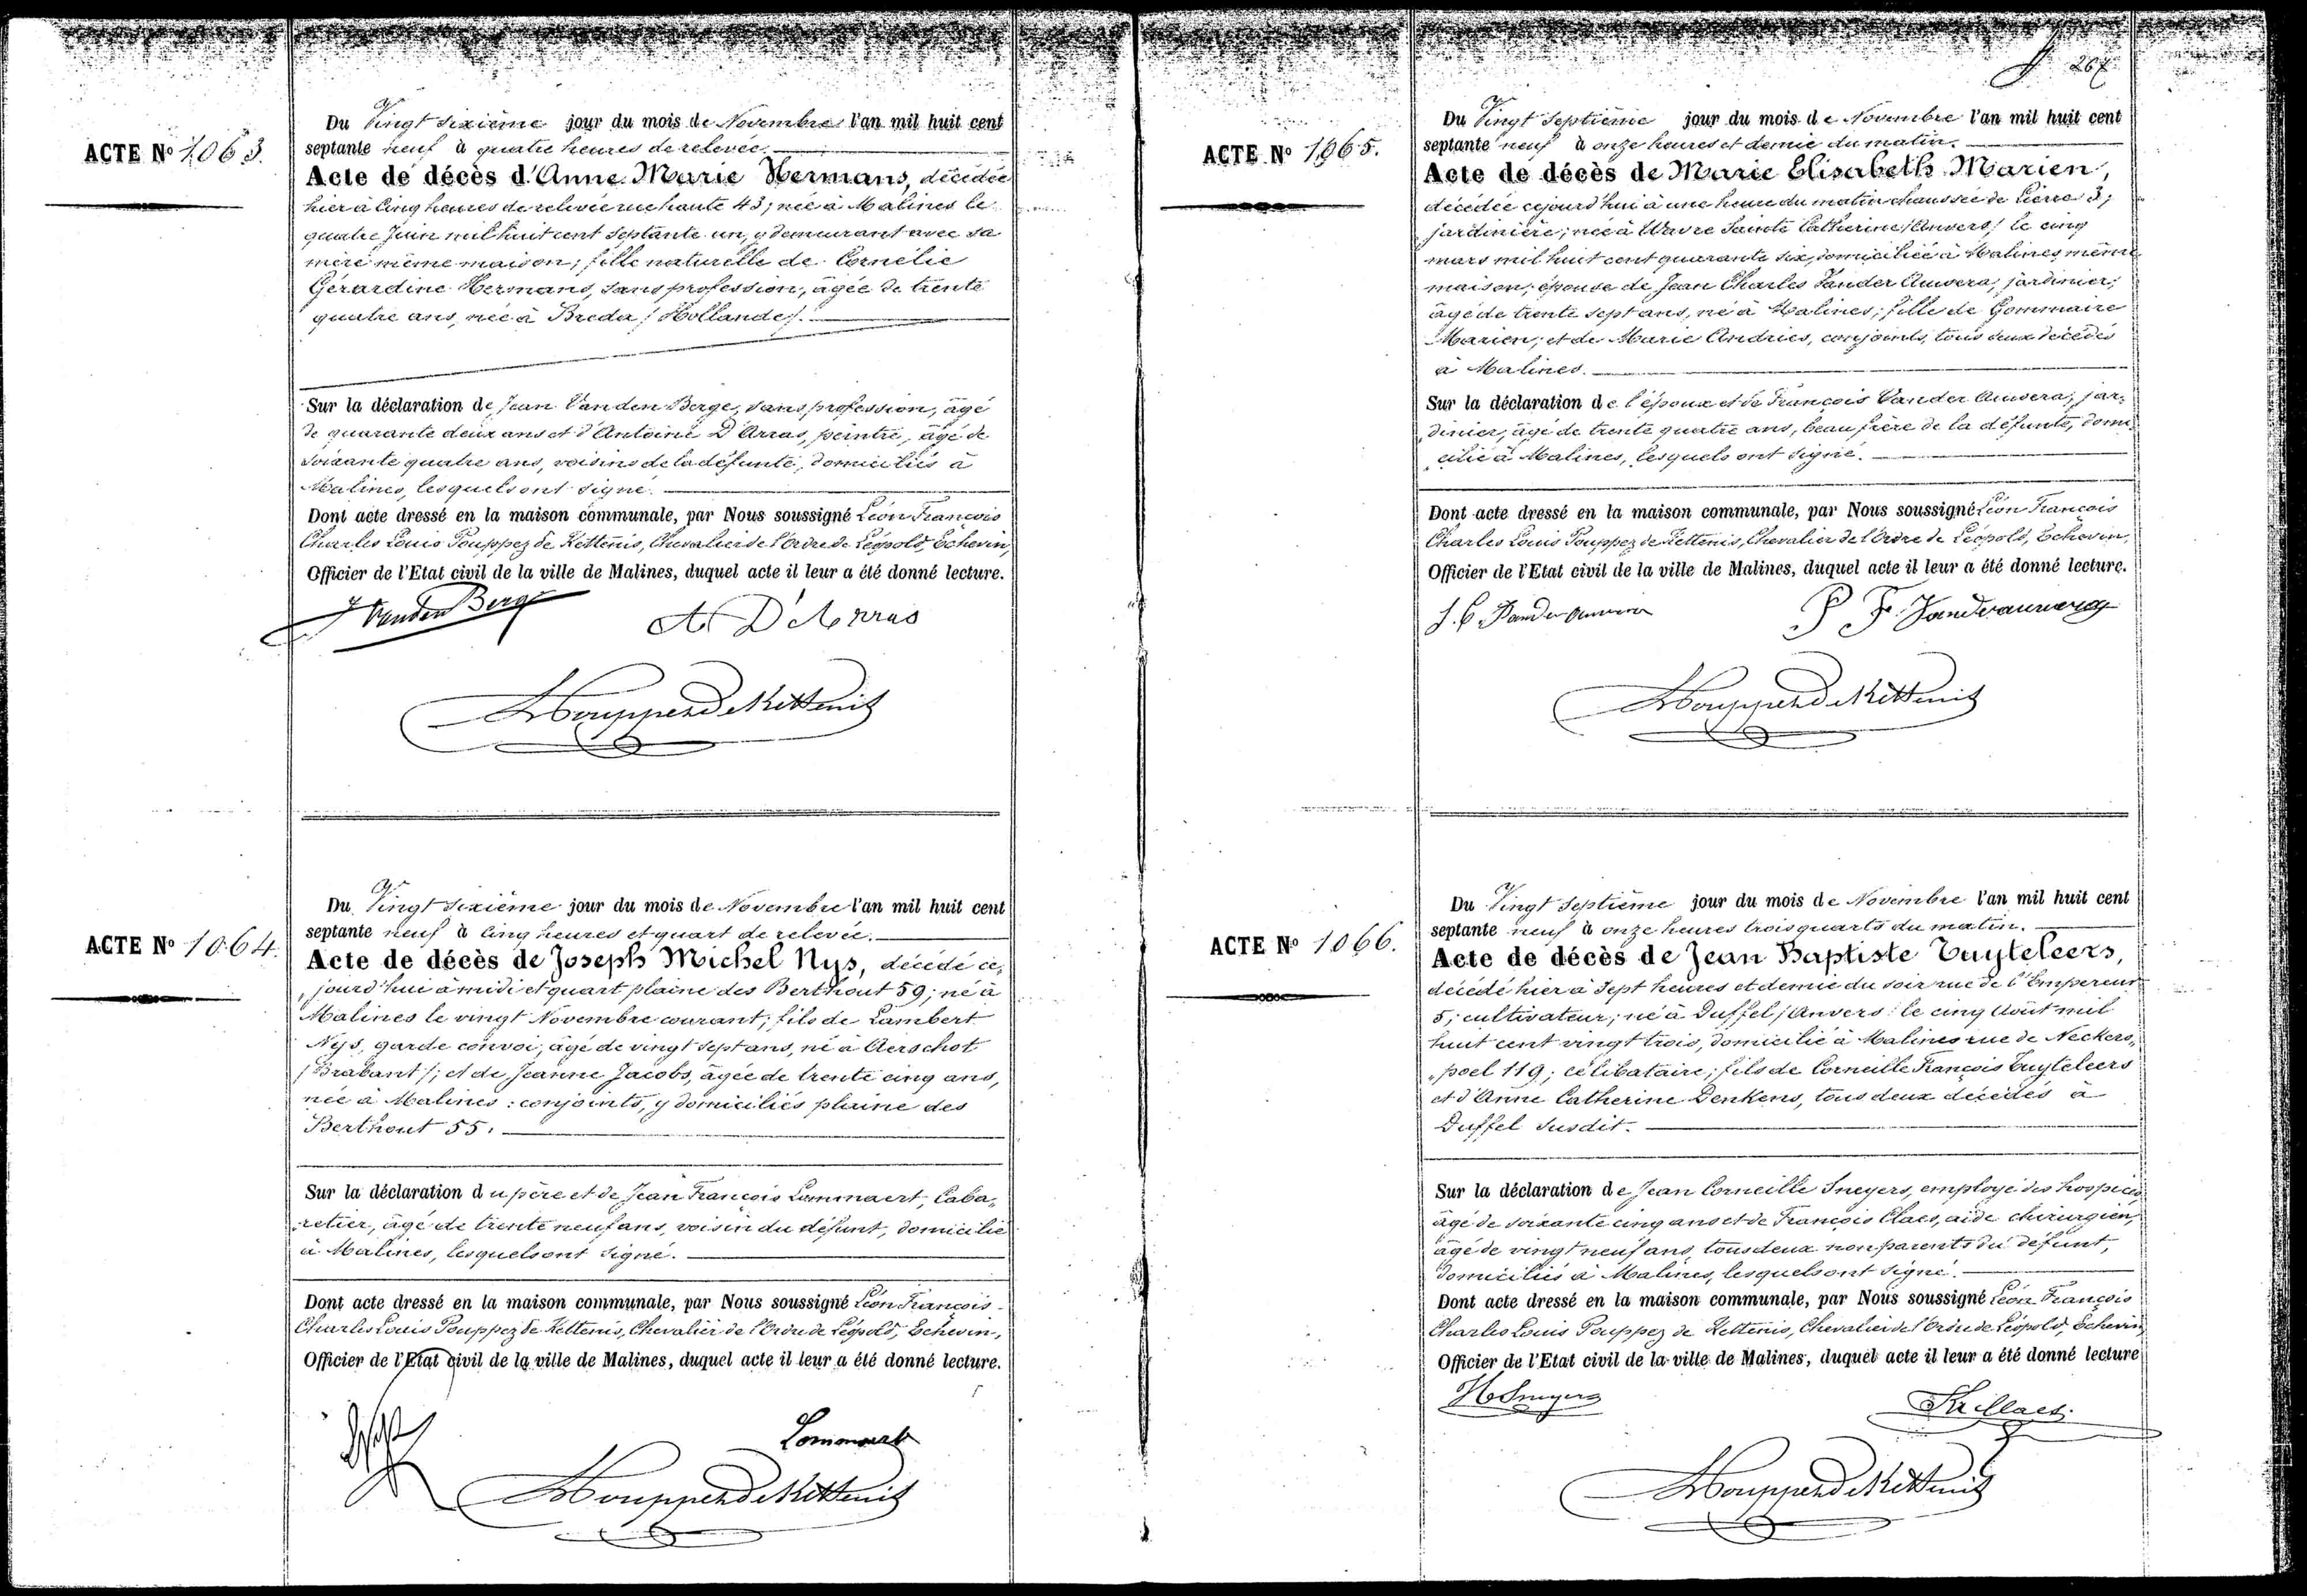 ACTE No 1063.
Du Vingt sixième jour du mois de Novembre l'an mil huit cent
septante neuf à quatre heures de relevée.
Acte de décès d'Anne Marie Hermans, décédée
hier à cinq heures de relevée rue haute 43; née à Malines le
quatre Juin mil huit cent septante un, y demeurant avec sa
mère même maison; fille naturelle de Cornélie
Gérardine Hermans, sans profession, âgée de trente
quatre ans, née à Breda / Hollande /.
Sur la déclaration de Jean Van den Berge, sans profession, âgé
de quarante deux ans et d'Antoine D'Arras, peintre, âgé de
soixante quatre ans, voisins de la défunte, domiciliés à
Malines, lesquels ont signé.
Dont acte dressé en la maison communale, par Nous soussigné Léon François
Charles Louis Pouppez de Kettenis, Chevalier de l'Ordre de Léopold, Echevin,
Officier de l'Etat civil de la ville de Malines, duquel acte il leur a été donné lecture.
J Vanden Berge
A D'Arras
Pouppez de Kettenis
ACTE No 1064.
Du Vingt sixième jour du mois de Novembre l'an mil huit cent
septante neuf à cinq heures et quart de relevée.
Acte de décès de Joseph Michel Nys, décédé ce,
, jourd'hui à midi et quart plaine des Berthout 59; né à
Malines le vingt Novembre courant; fils de Lambert
Nys, garde convoi, âgé de vingt sept ans, né à Aerschot
/ Brabant /; et de Jeanne Jacobs, âgée de trente cinq ans,
née à Malines: conjoints, y domiciliés plaine des
Berthout 55.
Sur la déclaration du père et de Jean François Lommaert, Caba,,
,retier, âgé de trente neuf ans, voisin du défunt, domicilié
à Malines, lesquels ont signé.
Dont acte dressé en la maison communale, par Nous soussigné Léon François
Charles Louis Pouppez de Kettenis, Chevalier de l'Ordre de Léopold, Echevin,
Officier de l'Etat civil de la ville de Malines, duquel acte il leur a été donné lecture.
Lommaert
Pouppez de Kettenis
267
ACTE No 1065.
Du Vingt septième jour du mois de Novembre l'an mil huit cent
septante neuf à onze heures et demie du matin.
Acte de décès de Marie Elisabeth Marien,
décédée cejourd'hui à une heure du matin chaussée de Lierre 3;
jardinière; née à Wavre Sainte Catherine / Anvers / le cinq
mars mil huit cent quarante six, domiciliée à Malines même
maison; épouse de Jean Charles Vander Auwera, jardinier,
âgé de trente sept ans, né à Malines; fille de Gommaire
Marien, et de Marie Andries, conjoints, tous deux décédés
à Malines.
Sur la déclaration de l'époux et de François Vander Auwera, jar,
,dinier, âgé de trente quatre ans, beau frère de la défunte, domi
,cilié à Malines, lesquels ont signé.
Dont acte dressé en la maison communale, par Nous soussigné Léon François
Charles Louis Pouppez de Kettenis, Chevalier de l'Ordre de Léopold, Echevin,
Officier de l'Etat civil de la ville de Malines, duquel acte il leur a été donné lecture.
J. C. Vander Auwera
P F. Vanderauwera
Pouppez de Kettenis
ACTE No 1066.
Du Vingt septième jour du mois de Novembre l'an mil huit cent
septante neuf à onze heures trois quarts du matin.
Acte de décès de Jean Baptiste Tuyteleers,
décédé hier à sept heures et demie du soir rue de l'Empereur
5; cultivateur; né à Duffel / Anvers / le cinq Août mil
huit cent vingt trois, domicilié à Malines rue de Neckers,,
,,poel 119; célibataire; fils de Corneille François Tuyteleers
et d'Anne Catherine Denkens, tous deux décédés à
Duffel susdit.
Sur la déclaration de Jean Corneille Sneyers, employé des hospices
âgé de soixante cinq ans et de François Claes, aide chirurgien,
âgé de vingt neuf ans, tous deux non parents du défunt,
domiciliés à Malines, lesquels ont signé.
Dont acte dressé en la maison communale, par Nous soussigné Léon François
Charles Louis Pouppez de Kettenis, Chevalier de l'Ordre de Léopold, Echevin,
Officier de l'Etat civil de la ville de Malines, duquel acte il leur a été donné lecture
Sneyers
Claes.
Pouppez de Kettenis